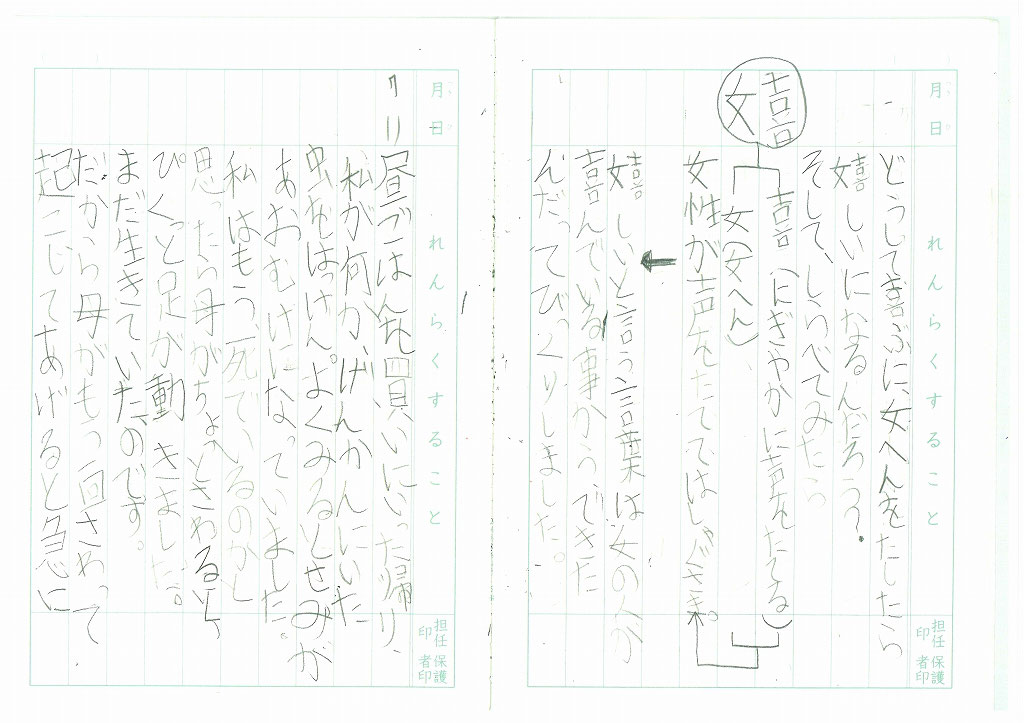 月
日
れんらくすること
担任印
保護者印
どうして喜ぶに、女へんをたしたら
嬉しいになるんだろう?
そして、しらべてみたら
嬉
喜(にぎやかに声をたてる)
女(女へん)
女性が声をたててはしゃぐさま。
←
嬉しいと言う言葉は女の人が
喜んでいる事からできた
んだってびっくりしました。
月
日
れんらくすること
担任印
保護者印
昼ごはんを買いにいった帰り、
私が何か、げんかんにいた
虫をはっけん。よくみるとせみが
あおむけになっていました。
私はもう、死でいるのかと
思ったら母がちょっとさわると、
ぴくっと足が動きました。
まだ生きていた、のです。
だから母がもう一回さわって
起こしてあげると急に